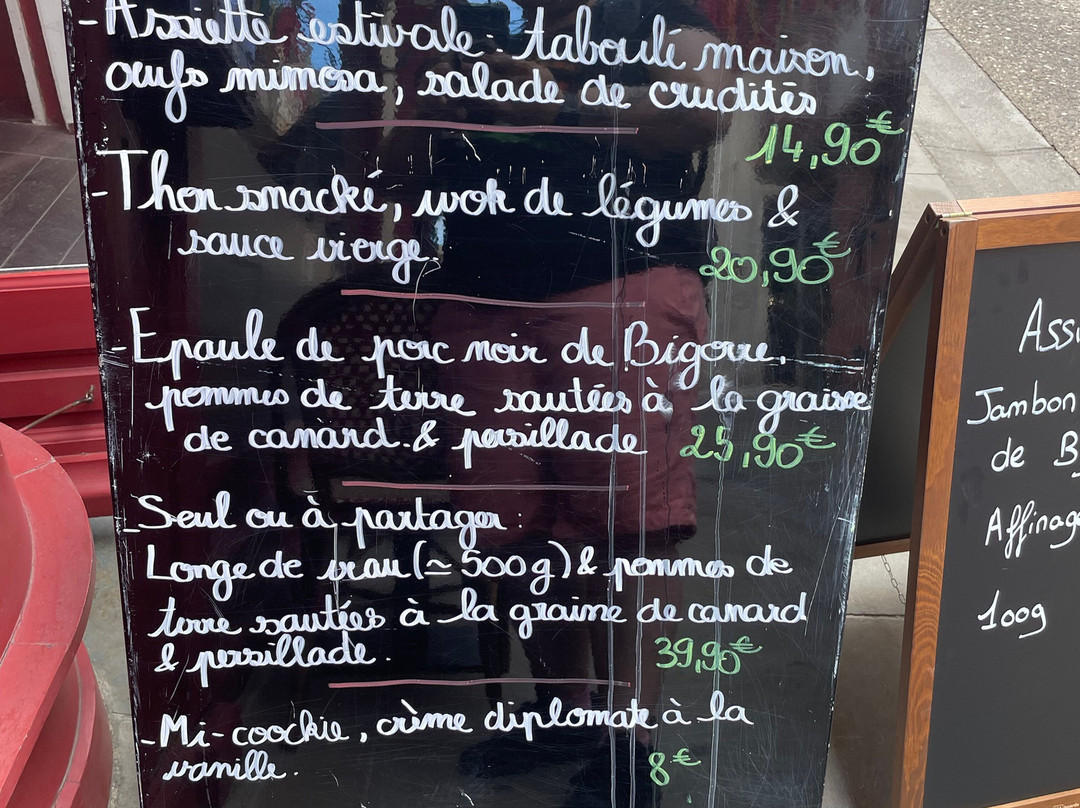 - Assiette estivale : taboulé maison,
œufs mimosa, salade de crudités
14,90€
- Thon snacké, wok de légumes &
sauce vierge.
20,90€
- Epaule de porc noir de Bigorre,
pommes de terre sautées à la graisse
de canard. & persillade 25,90€
- Seul ou à partager :
Longe de veau (≃ 500g) & pommes de
terre sautées à la graisse de canard
& persillade.
39,90€
- Mi-coockie, crème diplomate à la
vanille.
8€
Jambon
de
100g